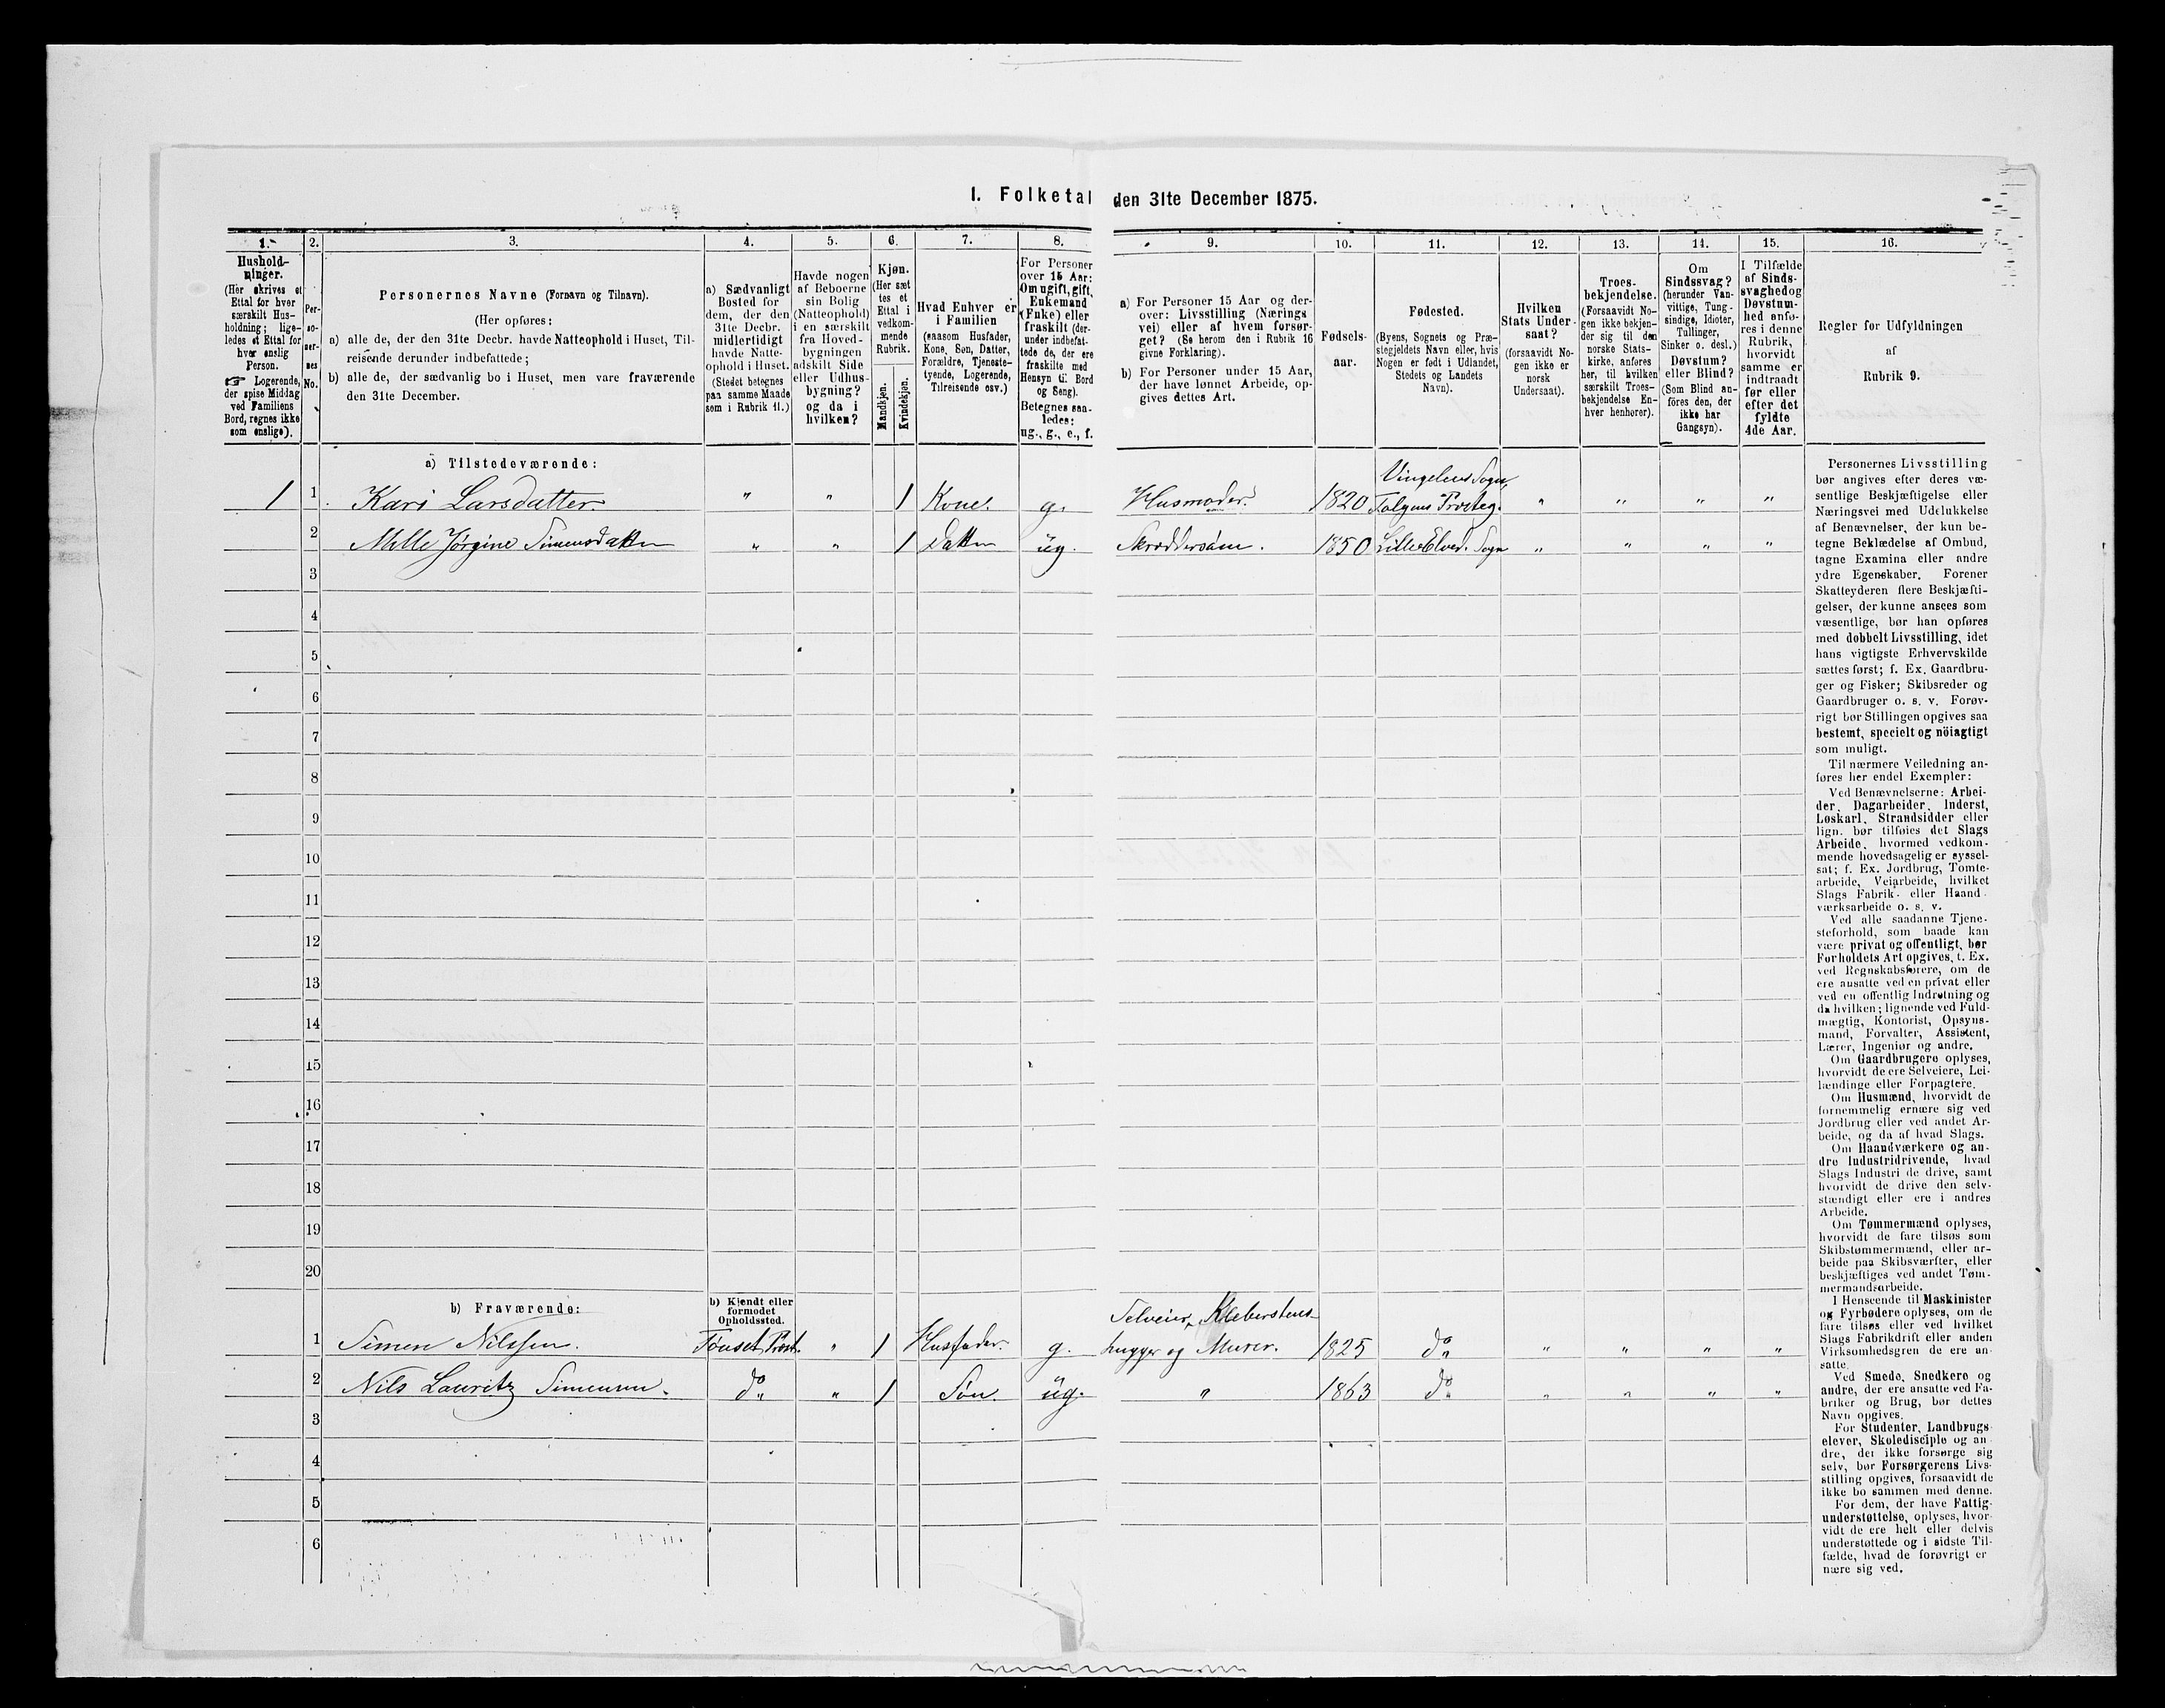 I. Folketal den 31te December 1875.
1. 2. 3. 4. 5. 6. 7. 8. 9. 10. 11. 12. 13. 14. 15. 16.
Hushold-
ninger.
(Her skrives et
Ettal for hver
særskilt Hus-
holdning; lige-
ledes et Ettal for
hver enslig
Person.
☞ Logerende,
der spise Middag
ved Familiens
Bord, regnes ikke
som enslige).
Per-
so-
ner-
nes
No.
Personernes Navne (Fornavn og Tilnavn).
(Her opføres:
a) alle de, der den 31te Decbr. havde Natteophold i Huset, Til-
reisende derunder indbefattede;
b) alle de, der sædvanlig bo i Huset, men vare fraværende
den 31te December.
a) Sædvanligt
Bosted for
dem, der den
31te Decbr.
midlertidigt
havde Natte-
ophold i Huset.
(Stedet betegnes
paa samme Maade
som i Rubrik 11.)
Havde nogen
af Beboerne
sin Bolig
(Natteophold)
i en særskilt
fra Hoved-
bygningen
adskilt Side
eller Udhus-
bygning?
og da i
hvilken?
Kjøn.
(Her sæt
tes et
Ettal i
vedkom-
mende
Rubrik.
Mandkjøn.
Kvindekjøn.
Hvad Enhver er
i Familien
(saasom Husfader,
Kone, Søn, Datter,
Forældre, Tjeneste-
tyende, Logerende,
Tilreisende osv.)
For Personer
over 15 Aar:
Om ugift, gift,
Enkemand
(Enke) eller
fraskilt (der-
under indbefat-
tede de, der ere
fraskilte med
Hensyn til Bord
og Seng).
Betegnes saa-
ledes:
ug., g., e., f.
a) For Personer 15 Aar og der-
over: Livsstilling (Nærings
vei) eller af hvem forsør-
get? (Se herom den i Rubrik 16
givne Forklaring).
b) For Personer under 15 Aar,
der have lønnet Arbeide, op-
gives dettes Art.
Fødsels-
aar.
Fødested.
(Byens, Sognets og Præ-
stegjeldets Navn eller, hvis
Nogen er født i Udlandet,
Stedets og Landets
Navn).
Hvilken
Stats Under-
saat?
(forsaavidt No-
gen ikke er
norsk
Undersaat).
Troes-
bekjendelse.
(Forsaavidt No-
gen ikke bekjen-
der sig til den
norske Stats-
kirke, anføres
her, til hvilken
særskilt Troes-
bekjendelse En-
hver henhører).
Om
Sindssvag?
(herunder Van-
vittige, Tung-
sindige, Idioter,
Tullinger,
Sinker o. desl.)
Døvstum?
eller Blind?
(Som Blind an-
föres den, der
ikke har
Gangsyn).
I Tilfælde
af Sinds-
svaghed og
Døvstum-
hed anfø-
res i denne
Rubrik,
hvorvidt
samme er
indtraadt
før eller
efter det
fyldte
4de Aar.
Regler for Udfyldningen
af
Rubrik 9.
a) Tilstedeværende:
1 1 Kari Larsdatter. " " 1 Kone. g. Husmoder. 1820 Vingelens Sogn,
Tolgens Prsteg. " " " "
2 Mille Jørgine Simensdatter " " 1 Datter ug. Skræddersöm. 1850 Lille Elved. Sogn " " " "
3
4
5
6
7
8
9
10
11
12
13
14
15
16
17
18
19
20
b) Fraværende:
b) Kjendt eller
formodet
Opholdssted.
1 Simen Nilssen. Tönset Prst. " 1 Husfader. g. Selveier, Klebersteens-
hugger og Murer. 1825 do " " " "
2 Nils Lauritz Simensen. do " 1 Søn. ug. " 1863 do " " " "
3
4
5
6
Personernes Livsstilling
bør angives efter deres væ-
sentlige Beskjæftigelse eller
Næringsvei med Udelukkelse
af Benævnelser, der kun be-
tegne Beklædelse af Ombud,
tagne Examina eller andre
ydre Egenskaber. Forener
Skatteyderen flere Beskjæfti-
gelser, der kunne ansees som
væsentlige, bør han opføres
med dobbelt Livsstilling, idet
hans vigtigste Erhvervskilde
sættes først; f. Ex. Gaardbru-
ger og Fisker; Skibsreder og
Gaardbruger o. s. v. Forøv-
rigt bør Stillingen opgives saa
bestemt, specielt og nöiagtigt
som muligt.
Til nærmere Veiledning an-
føres her endel Exempler:
Ved Benævnelserne: Arbei-
der, Dagarbeider, Inderst,
Løskarl, Strandsidder eller
lign. bør tilføies det Slags
Arbeide, hvormed vedkom-
mende hovedsagelig er syssel-
sat; f. Ex. Jordbrug, Tomte-
arbeide, Veiarbeide, hvilket
Slags Fabrik- eller Haand-
værksarbeide o. s. v.
Ved alle saadanne Tjene-
steforhold, som baade kan
være privat og offentligt, bør
Forholdets Art opgives, t. Ex.
ved Regnskabsførere, om de
ere ansatte ved en privat eller
ved en offentlig Indretning og
da hvilken; lignende ved Fuld-
mægtig, Kontorist, Opsyns-
mand, Forvalter, Assistent,
Lærer, Ingeniør og andre.
Om Gaardbrugere oplyses,
hvorvidt de ere Selveiere, Lei-
lændinge eller Forpagtere.
Om Husmænd, hvorvidt de
fornemmelig ernære sig ved
Jordbrug eller ved andet Ar-
beide, og da af hvad Slags.
Om Haandværkere og an-
dre Industridrivende, hvad
Slags Industri de drive, samt
hvorvidt de drive den selv-
stændigt eller ere i andres
Arbeide.
Om Tømmermænd oplyses,
hvorvidt de fare tilsøs som
Skibstømmermænd, eller ar-
beide paa Skibsværfter, eller
beskjæftiges ved andet Tøm-
mermandsarbeide.
I Henseende til Maskinister
og Fyrbødere oplyses, om de
fare tilsøs eller ved hvilket
Slags Fabrikdrift eller anden
Virksomhedsgren de ere an-
satte.
Ved Smede, Snedkere og
andre, der ere ansatte ved Fa-
briker og Brug, bør dettes
Navn opgives.
For Studenter, Landbrugs-
elever, Skoledisciple og an-
dre, der ikke forsørge sig
selv, bør Forsørgerens Livs-
stilling opgives, forsaavidt de
ikke bo sammen med denne.
For dem, der have Fattig-
understøttelse, oplyses, hvor-
vidt de ere helt eller delvis
understøttede og i sidste Til-
fælde, hvad de forøvrigt er
nære sig ved.